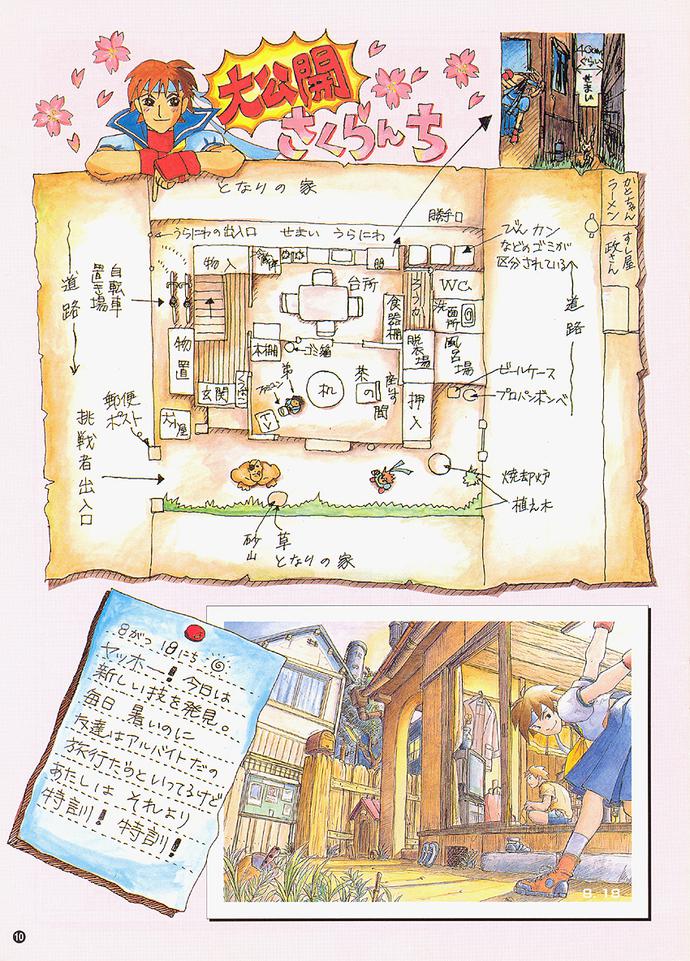 大公開
さくらんち
40cm
ぐらい
せまい
となりの家
勝手口
かとちゃん
ラーメン
すし屋
政さん
うらにわの出入口
せまい うらにわ
びん カン
などのゴミが
区分されている
道路
自転車
置き場
物入
台所
食器棚
ろうか
WC
洗面所
道路
物置
本棚
ゴミ箱
脱衣場
風呂場
ビールケース
プロパンボンベ
玄関
弟
ファミコン
TV
机
茶の間
押入
郵便
ポスト
犬小屋
挑戦者出入口
焼却炉
植え木
砂山
草
となりの家
8がつ 18にち
ヤッホー! 今日は
新しい技を発見。
毎日 暑いのに
友達はアルバイトだの
旅行だのといってるけど
あたしは それより
特訓! 特訓!
8.18
10